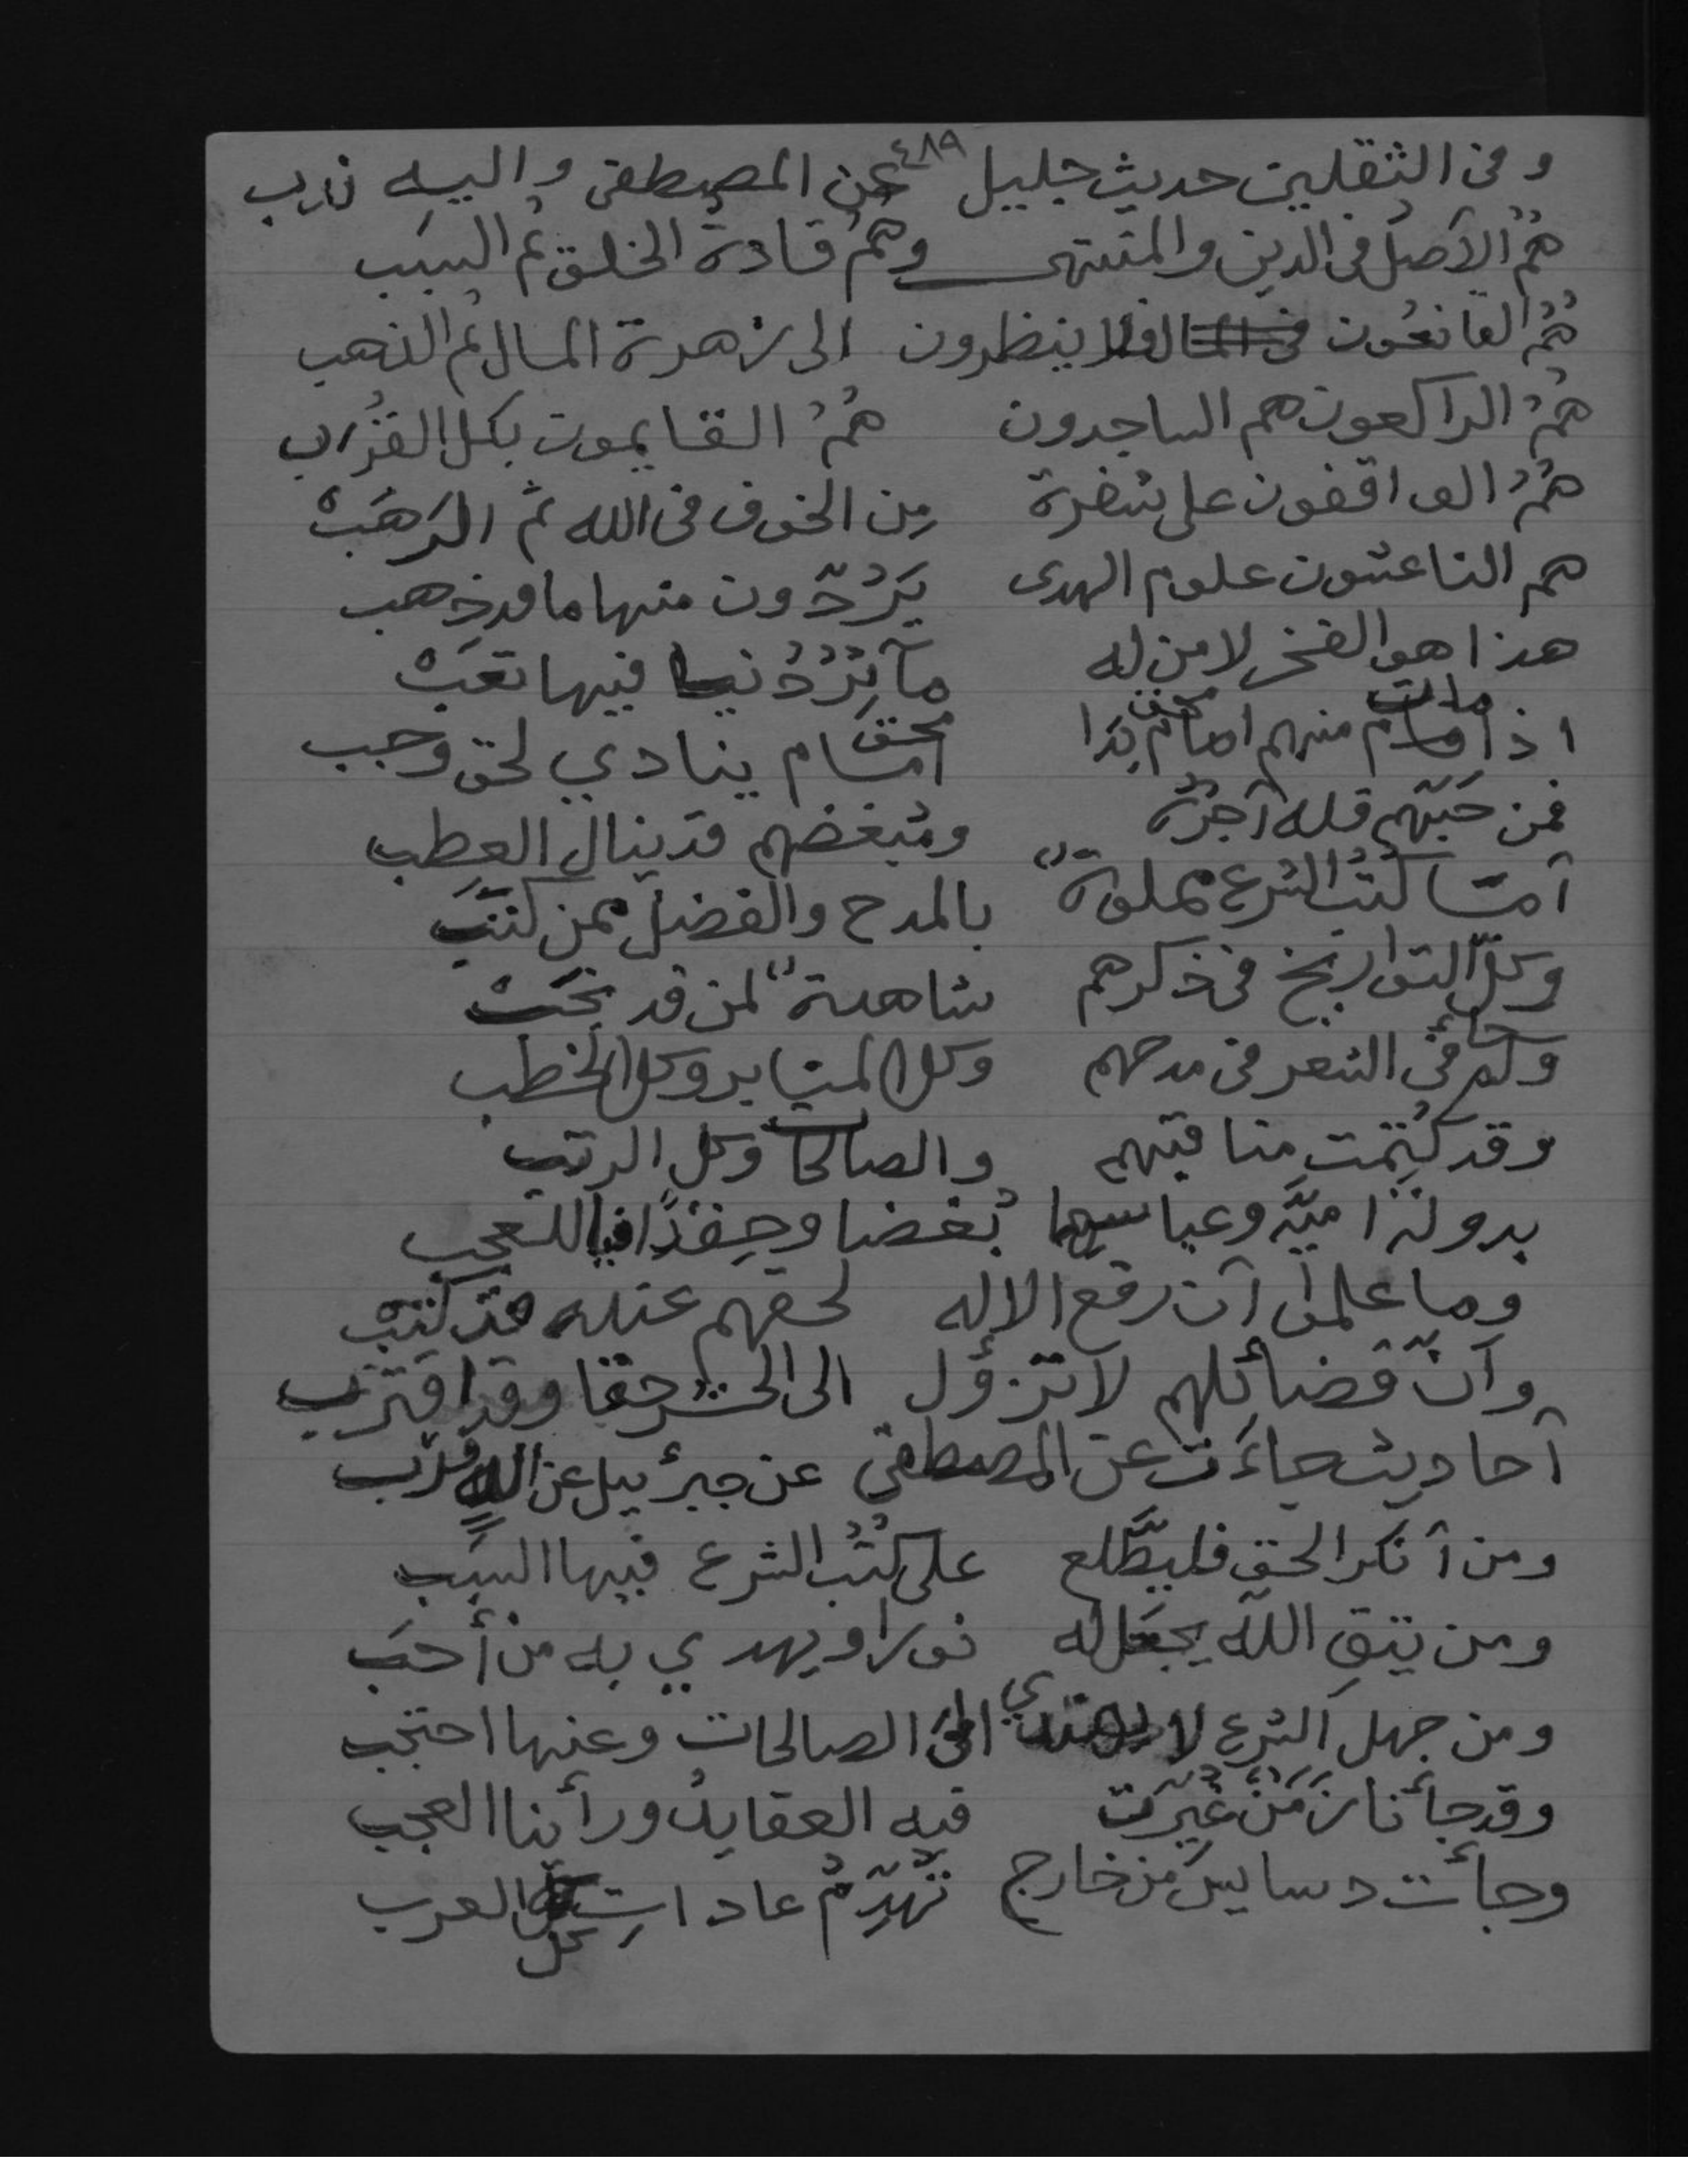 ٤٨٩
وفى الثقلين حديث جليل عن المصطفى واليه نارب
هُمُ الآصل فى الدين والمنتهى وهُمْ قادة الخلق ثم السبب
هُمُ القانعُون فلا ينظرون الى زهرة المال ثم الذهب
هُمُ الراكعون هم الساجدون هُمُ القايمون بكل القُرَب
هُمُ الواقفون على شفرة مِن الخوف فى الله ثم الرَهَبْ
هم الناعشون علوم الهدى يَرُدّون منها ما قد ذهب
هذا هو الفخر لا من له مآثِرُ دُنيا فيها تعَبْ
اذا مات منهم امام محق بَدَا امام محق ينادي لحق وجب
فمن حَبّهم فله آجْرُهُ ومُبغضهم قد ينال العطب
آمّا كتُبُ الشرع مملوة بالمدح والفضل ممن كتَبَ
وكلّ التواريخ فى ذكرهم شاهدة لمن قد نخَبْ
وكم جائ فى الشعر فى مدحهم وكل المنابر وكل الخطب
وقد كُتِمت مناقبهم والصالحات وكل الرتب
بدولة اميّه وعباسها بُغضا وحِقدًا فيا للعجب
وما علموا آن رفع الاله لحقهم عنده قد كتبْ
وآنّ فضائلهم لا تزؤل الى الحشر حقا وقد اقترب
آحاديث جاءَت عن المصطفى عن جبرئيل عن اللهِ قرب
ومن آنكر الحق فليطّلع على كتُبُ الشرع فيها السبَب
ومن يتقِ اللّه يجعَل له نورا ويهدي به من أحَب
ومن جهل الشرع لا يهتدي الىَ الصالحات وعنها احتجب
وقد جأنا زَمَنٌ غُيّرَت فيه العقايدُ ورأينا العجب
وجأت دسايسُ من خارج تُهَدِّمُ عاداتِ كل العرب